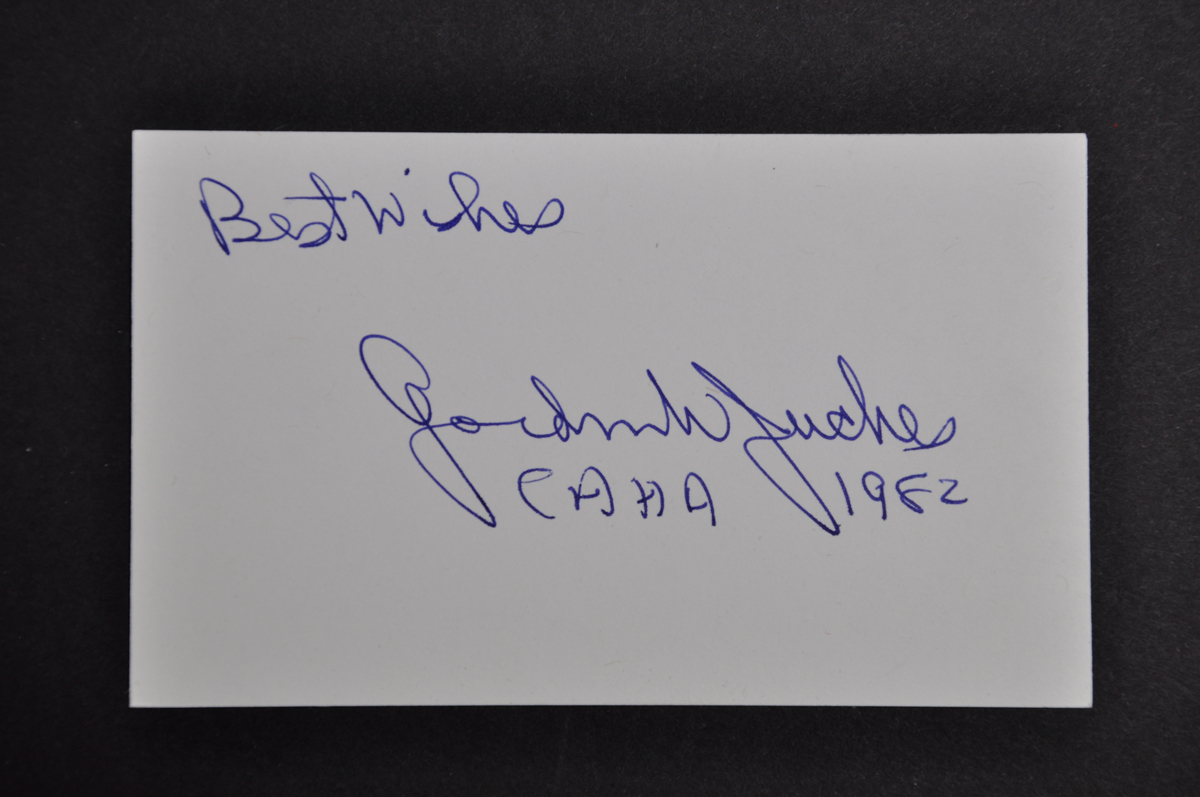 Best Wishes
Gordon W Juckes
CAHA 1982